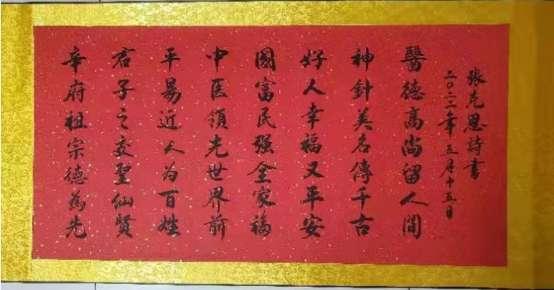 辛府祖宗德為先
君子之交聖仙賢
平易近人为百姓
中医領先世界前
國富民强全家福
好人幸福又平安
神針美名傳千古
醫德高尚留人間
二〇二二年五月十五日
張克恩詩書